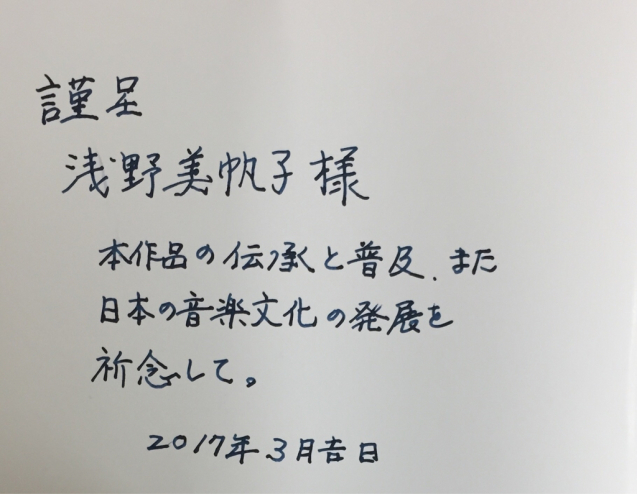 謹呈
浅野美帆子様
本作品の伝承と普及、また
日本の音楽文化の発展を
祈念して。
2017年3月吉日